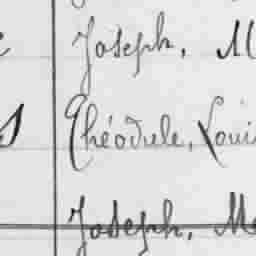 Joseph, M
Théodule, Loui
Joseph, Ma